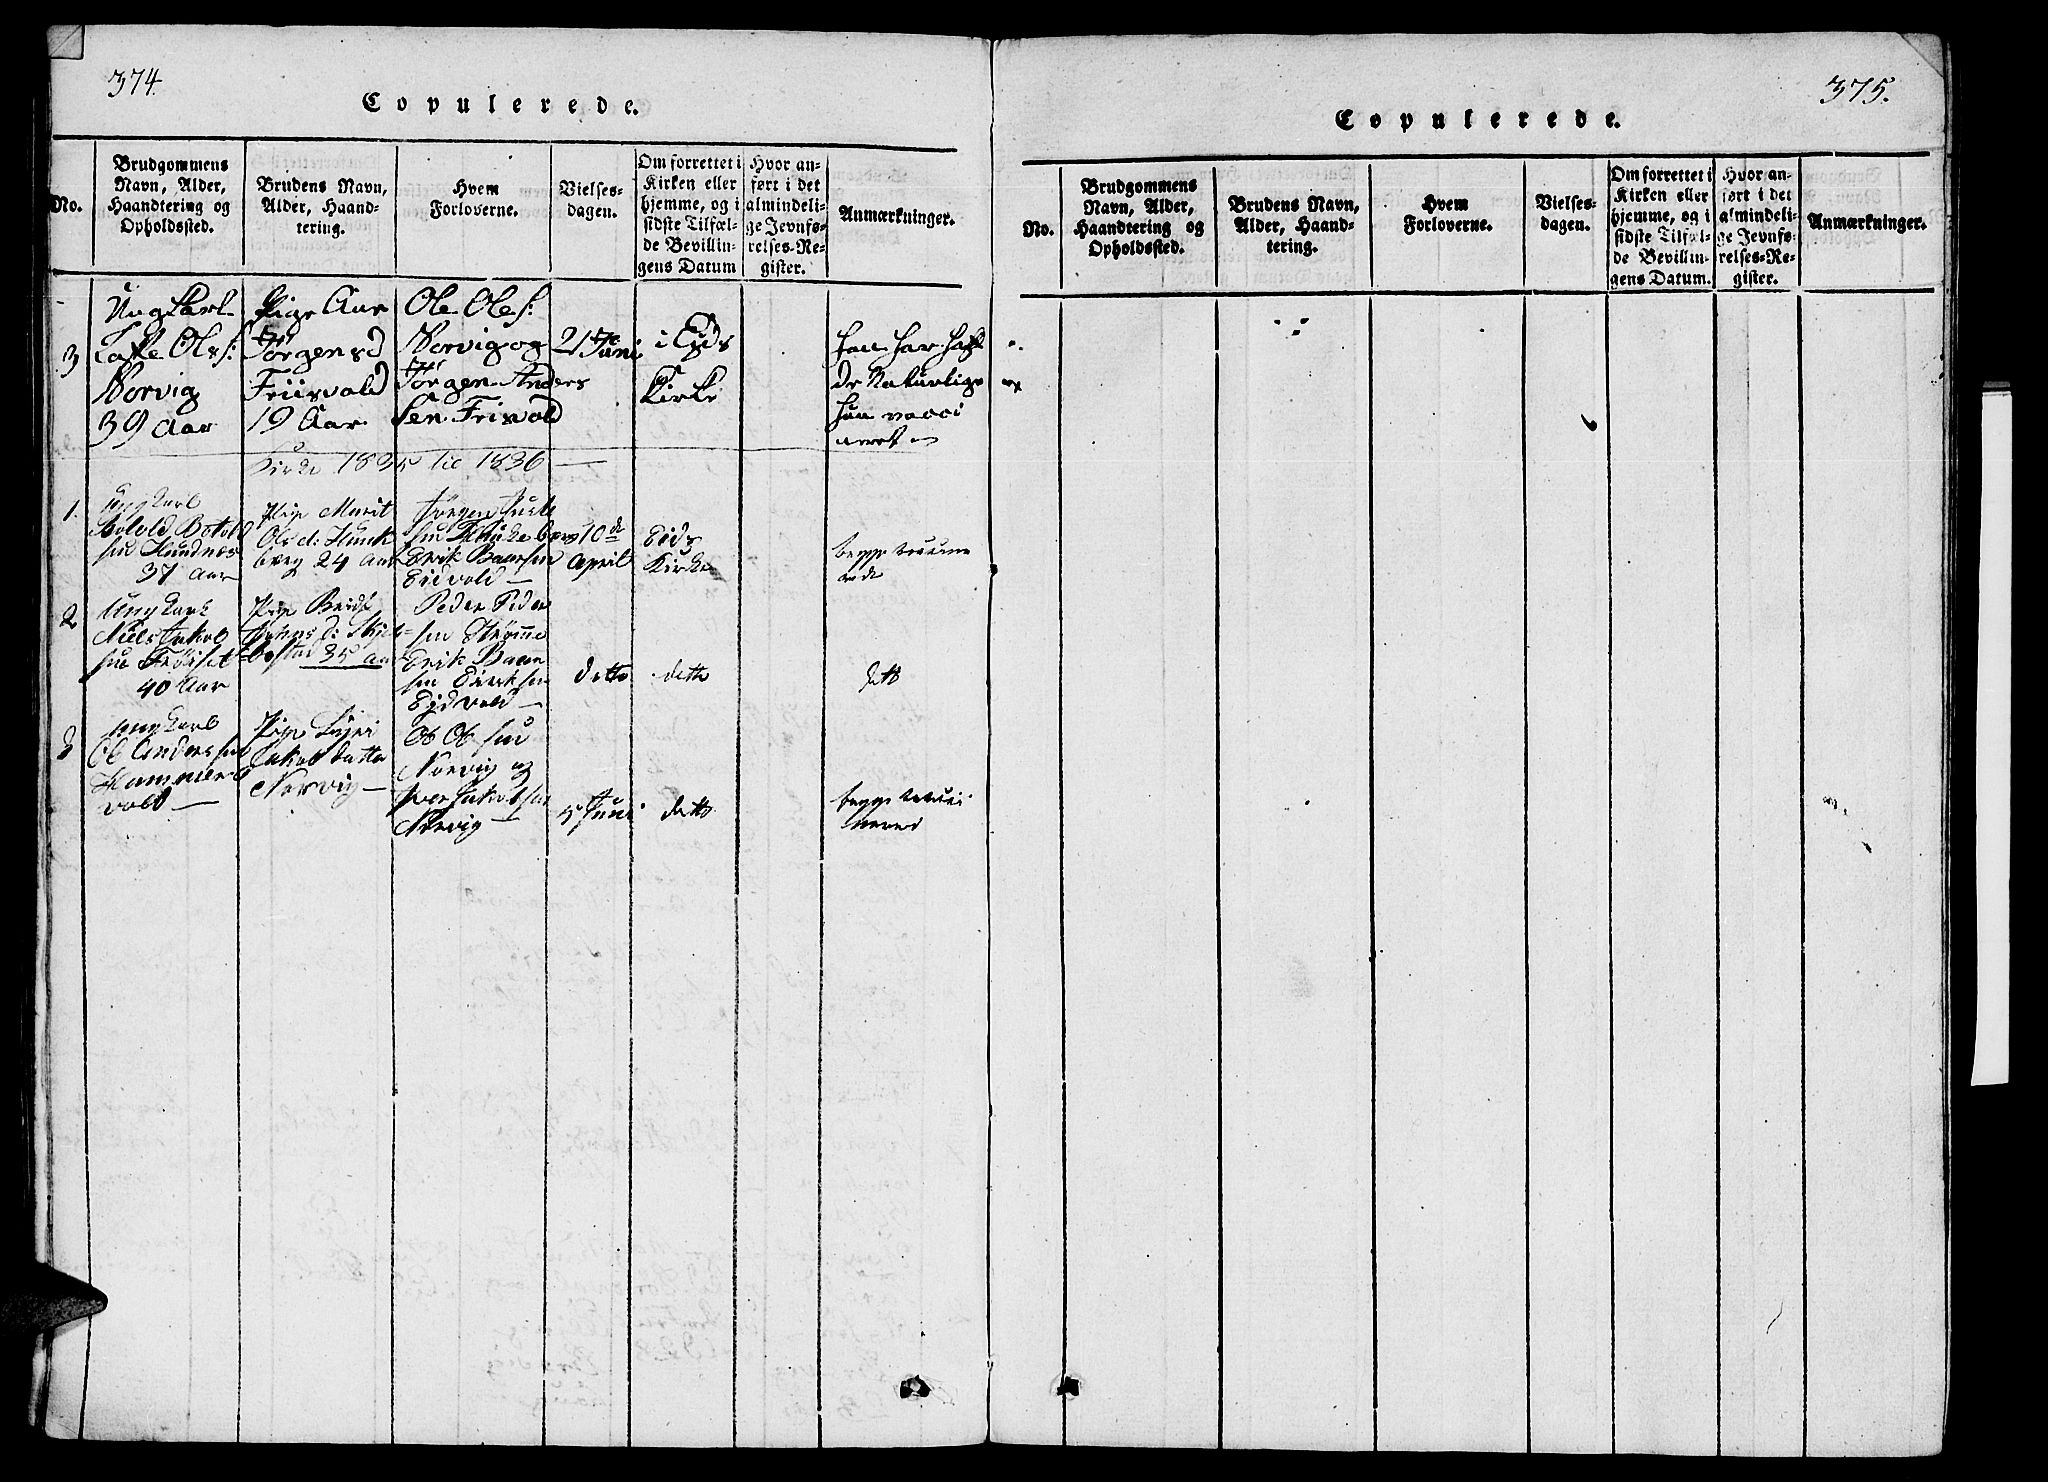 374.
Copulerede.
No.
Brudgommens
Navn, Alder,
Haandtering og
Opholdssted.
Brudens Navn,
Alder, Haand-
tering.
Hvem
Forloverne.
Vielses-
dagen.
Om forrettet i
Kirken eller
hjemme, og i
sidste Tilfæl-
de Bevillin-
gens Datum
Hvor an-
ført i det
almindeli-
ge Jevnfø-
relses-Re-
gister.
Anmærkninger.
3
Ungkarl
Ols:
Norvig
39 Aar
Pige
Jørgensd
Friisvold
19 Aar
Ole Ols:
Norvig og
Jørgen Anders
sen Frisvold
21 Juni
i Eids
Kirke
han har haft
1835 til 1836
1.
Ungkarl
Botold Botold
sen Hundnæs
37 Aar
Pige Marit
Olsd: Hunk
berg 24 Aar
Jørgen
Erik Baarsen
Eidvold
10de
April
Eids
Kirke
begge
2
Ungkarl
Niels Jakob
sen Frøiset
40 Aar
Pige
35 Aar
Peder Peder
sen Strømme
Erik
sen
Eidvold
detto
dette
dette
3
Ungkarl
Ol Anderssen
Hammer
vold
Pige
Jakobdatter
Norvig
Ol Olsen
Norvig og
Iver Jakobsen
Norvig
5 Juni
dette
begge
375.
Copulerede.
No.
Brudgommens
Navn, Alder,
Haandtering og
Opholdssted.
Brudens Navn,
Alder, Haand-
tering.
Hvem
Forloverne.
Vielses-
dagen.
Om forrettet i
Kirken eller
hjemme, og i
sidste Tilfæl-
de Bevillin-
gens Datum.
Hvor an-
ført i det
almindeli-
ge Jevnfø-
relses-Re-
gister.
Anmærkninger.